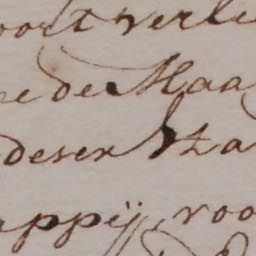 oort verle
ne de Maa
deser Sta
appij, voo